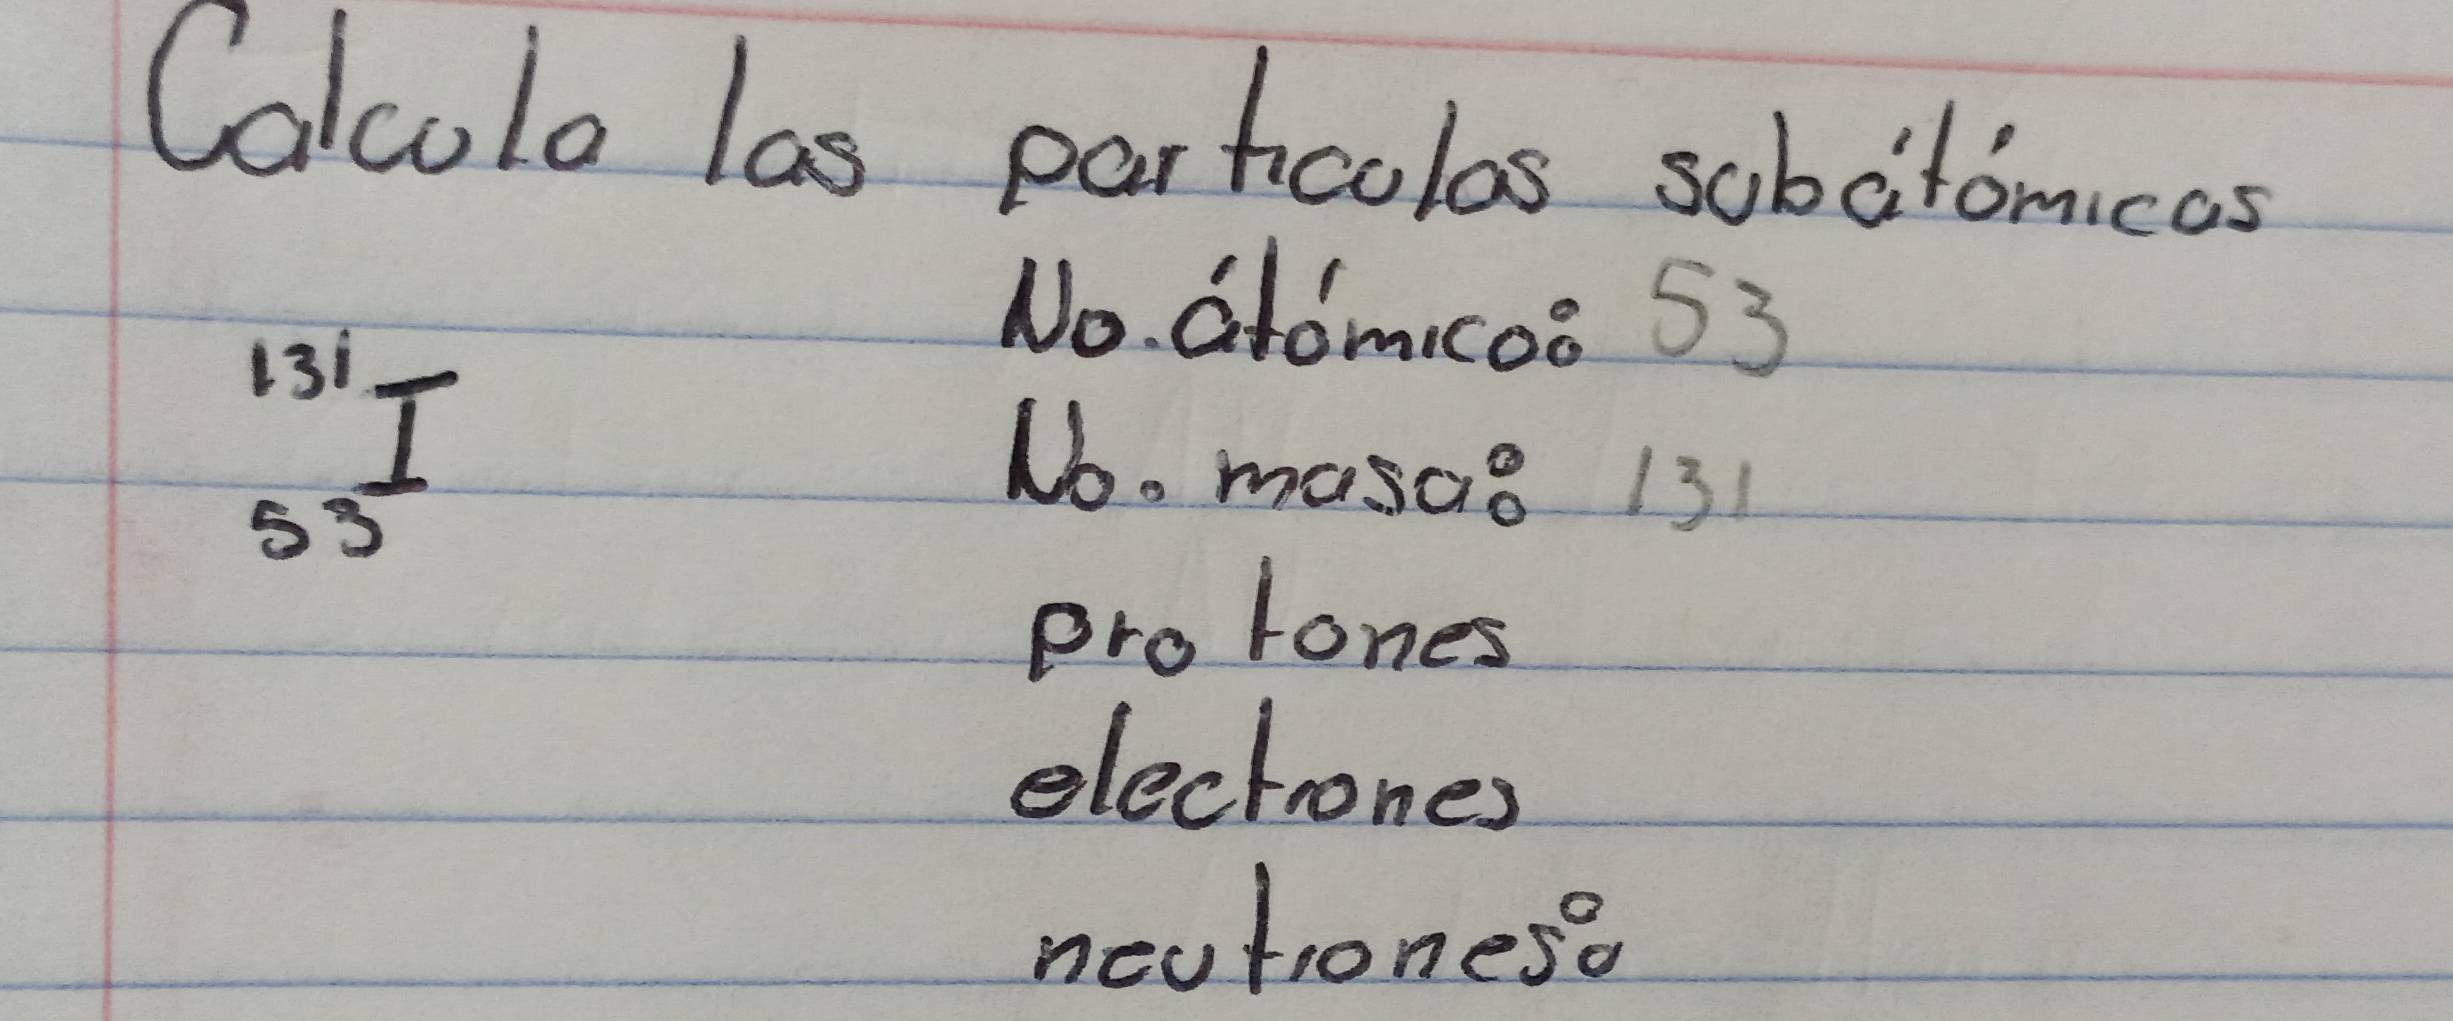 Calcula las particulas subátómicas
No. átómico: 53
131 I
No. masa: 131
53
protones
electrones
neutrones: